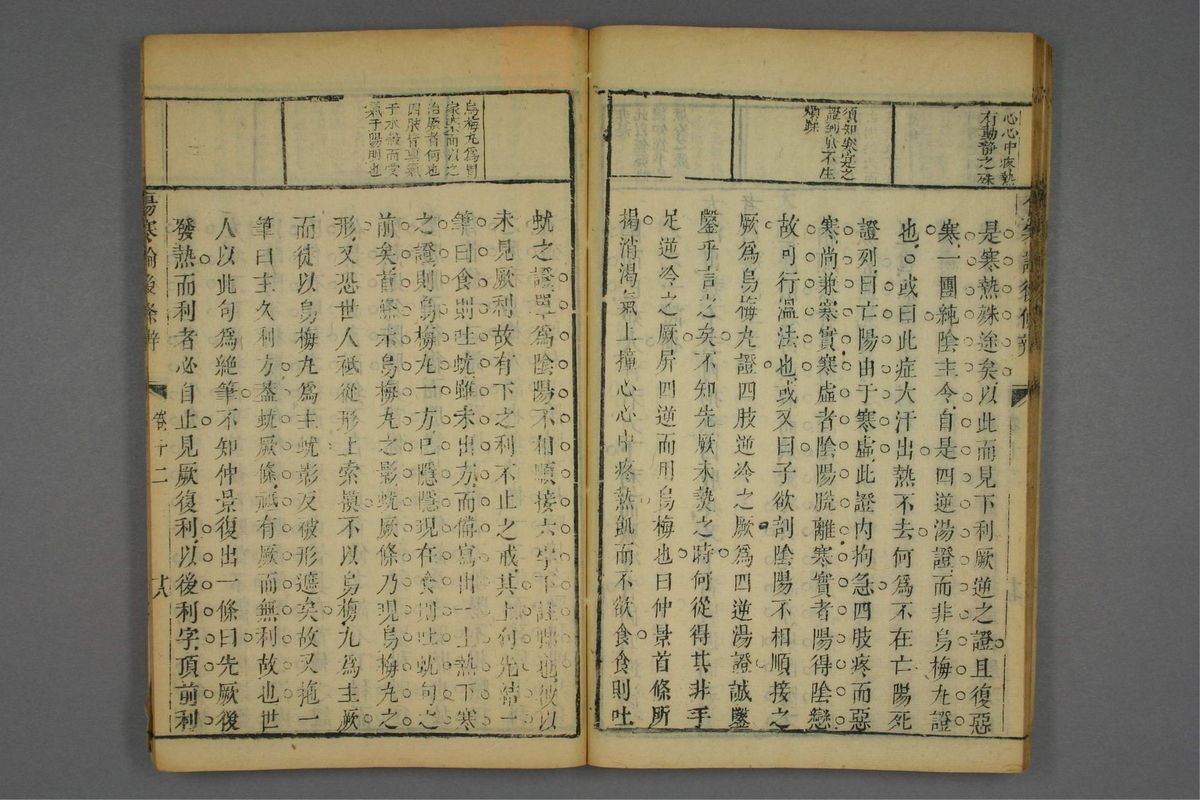 心心中疼熱
有動靜之殊
須知寒定之
證到底不生
煩躁
是寒熱殊途矣以此而見下利厥逆之證且復惡
寒一團純陰主令自是四逆湯證而非烏梅丸證
也或曰此症大汗出熱不去何爲不在亡陽死
證列曰亡陽由于寒虛此證內拘急四肢疼而惡
寒尚兼寒實寒虛者陰陽脫離寒實者陽得陰戀
故可行溫法也或又曰子欲訓陰陽不相順接之
厥爲烏梅丸證四肢逆冷之厥爲四逆湯證誠鑿
鑿乎言之矣不知先厥未熱之時何從得其非手
足逆冷之厥屏四逆而用烏梅也曰仲景首條所
揭消渴氣上撞心心中疼熱飢而不欲食食則吐
烏梅丸爲胃
家藥而以之
治厥者何也
四肢皆稟氣
于水穀而受
氣于陽明也
蚘之證單爲陰陽不相順接六字下註脚也彼以
未見厥利故有下之利不止之戒其上句先結一
筆曰食則吐蚘雖未出方而備寫出一上熱下寒
之證則烏梅丸一方已隱隱現在食則吐蚘句之
前矣首條未烏梅丸之影蚘厥條乃現烏梅丸之
形又恐世人祗從形上索摸不以烏梅丸爲主厥
而徒以烏梅丸爲主蚘影反被形遮矣故又拖一
筆曰主久利方蓋蚘厥條祗有厥而無利故也世
人以此句爲絕筆不知仲景復出一條曰先厥後
發熱而利者必自止見厥復利以後利字頂前利
傷寒論後條辨
卷十二